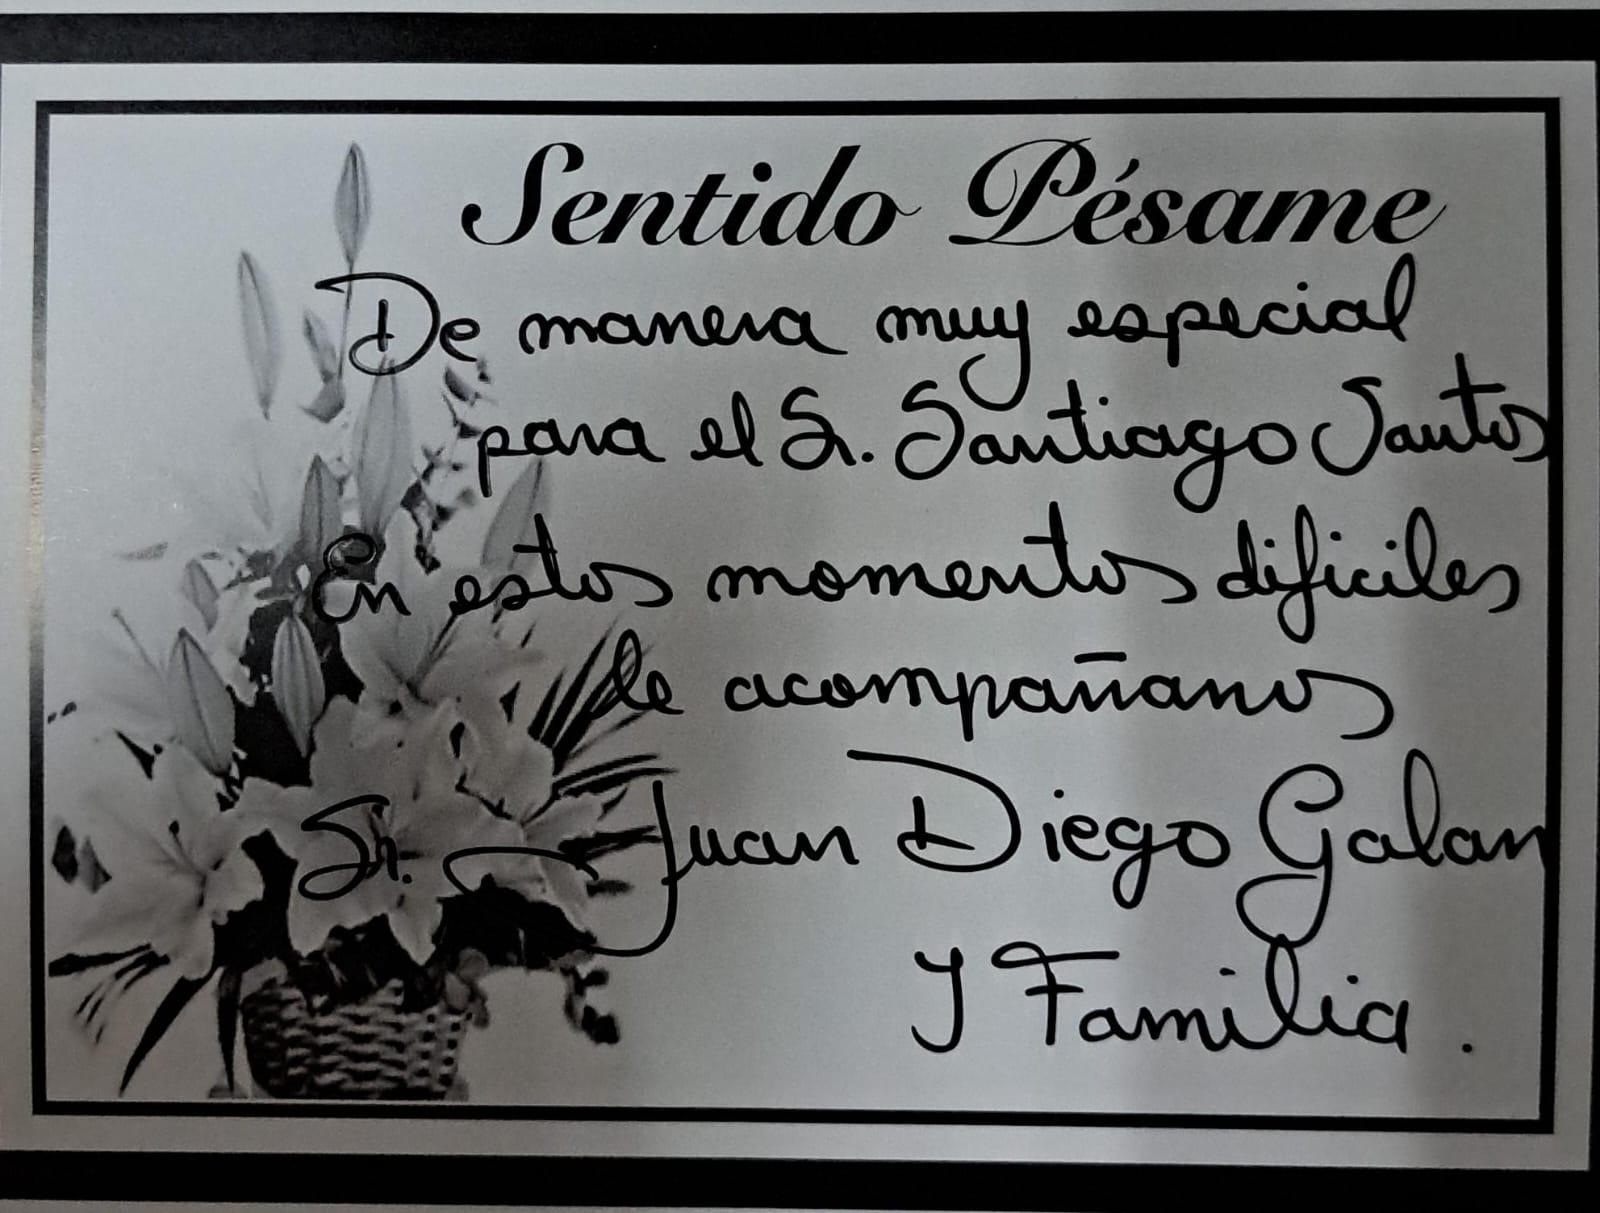 Sentido Pésame
De manera muy especial
para el Sr. Santiago Santos
En estos momentos dificiles
le acompañamos
Sr. Juan Diego Galan
Y Familia.